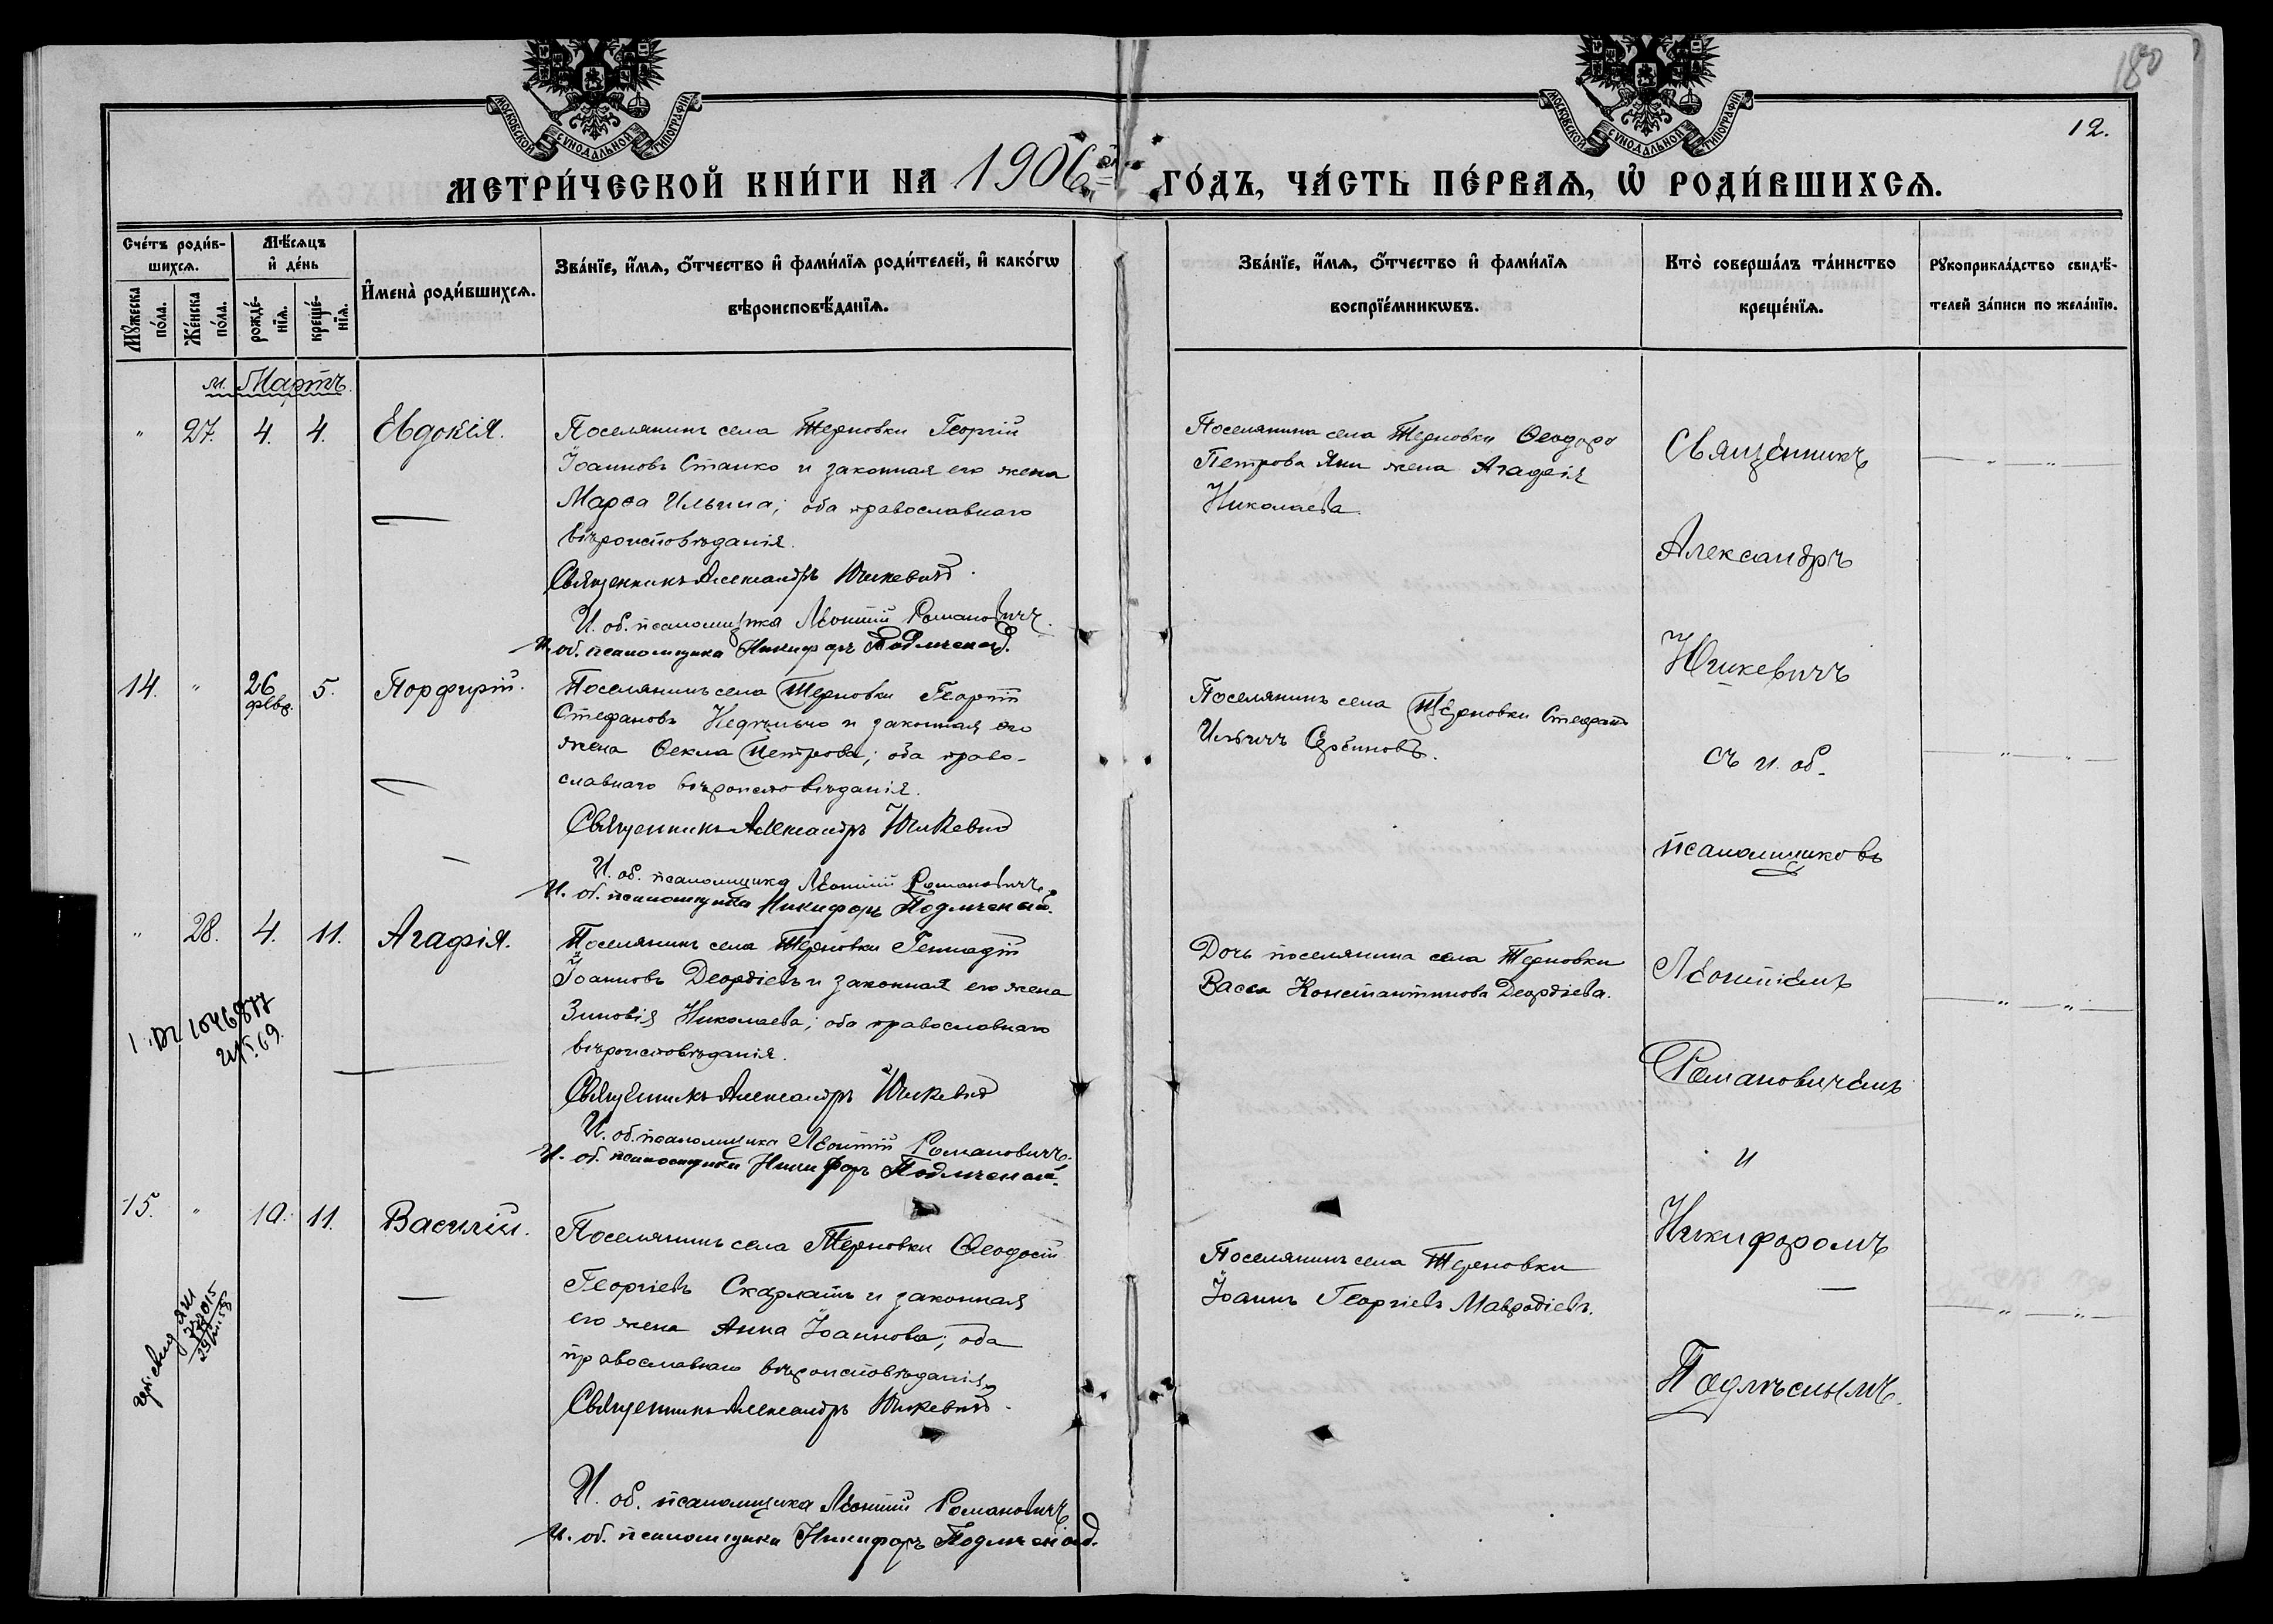 180
12.
МОСКОВСКОЙ СѴНОДАЛЬНОЙ ТИПОГРАФІИ
МОСКОВСКОЙ СѴНОДАЛЬНОЙ ТИПОГРАФІИ
МЕТРИ́ЧЕСКОЙ КНИ́ГИ НА 1906 ГО́ДЪ, ЧА́СТЬ ПЕ́РВАѦ, Ѡ҆ РОДИ́ВШИХСѦ.
Сче́тъ роди́в-
шихсѧ.
Мѣ́сѧцъ
и҆ де́нь
И҆мена̀ роди́вшихсѧ.
Зва́нїе, и҆́мѧ, ѻ҆́тчество и҆ фами́лїѧ роди́телей, и҆ како́гѡ
вѣроисповѣ́данїѧ.
Зва́нїе, и҆́мѧ, ѻ҆́тчество и҆ фами́лїѧ
воспрїе́мникѡвъ.
Кто̀ соверша́лъ та́инство
креще́нїѧ.
Рꙋкоприкла́дство свидѣ́-
телей за́писи по жела́нїю.
Мꙋ́жеска
по́ла.
Же́нска
по́ла.
рожде́-
нїѧ.
креще́-
нїѧ.
м. Мартъ.
" 27. 4. 4. Евдокія.
Поселянинъ села Терновки Георгій
Іоанновъ Станко и законная его жена
Марѳа Ильина; оба православнаго
вѣроисповѣданія.
Священникъ Александръ Юшкевичъ.
И. об. псаломщика Леонтій Романовичъ.
И. об. псаломщика Никифоръ Подлѣсный.
Поселянина села Терновки Ѳеодора
Петрова Яни жена Агафія
Николаева.
14. " 26 февр. 5. Порфирій.
Поселянинъ села Терновки Георгій
Стефановъ Недѣлько и законная его
жена Ѳекла Петрова; оба право-
славнаго вѣроисповѣданія.
Священникъ Александръ Юшкевичъ
И. об. псаломщика Леонтій Романовичъ.
И. об. псаломщика Никифоръ Подлѣсный.
Поселянинъ села Терновки Стефанъ
Ильичъ Сербиновъ.
" 28. 4. 11. Агафія.
Поселянинъ села Терновки Геннадій
Іоанновъ Деордіевъ и законная его жена
Зиновія Николаева; оба православнаго
вѣроисповѣданія.
Священникъ Александръ Юшкевичъ
И. об. псаломщика Леонтій Романовичъ.
И. об. псаломщика Никифоръ Подлѣсный.
Дочь поселянина села Терновки
Васса Константинова Деордіева.
1046877
15. " 10. 11. Василій.
Поселянинъ села Терновки Ѳеодосій
Георгіевъ Скарлатъ и законная
его жена Анна Іоаннова; оба
православнаго вѣроисповѣданія.
Священникъ Александръ Юшкевичъ.
И. об. псаломщика Леонтій Романовичъ
И. об. псаломщика Никифоръ Подлѣсный.
Поселянинъ села Терновки
Іоаннъ Георгіевъ Мавродіевъ.
Священникъ
Александръ
Юшкевичъ
съ и. об.
псаломщиковъ
Леонтіемъ
Романовичемъ
и
Никифоромъ
Подлѣснымъ.